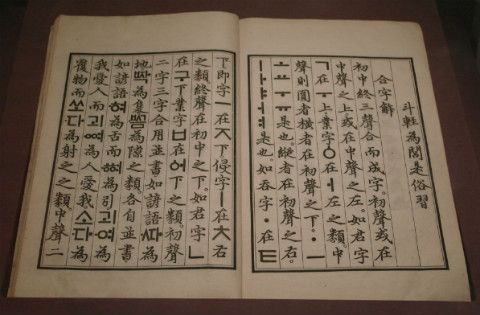 斗輕為閭是俗習
合字解
初中終三聲合而成字。初聲或在
中聲之上。或在中聲之左。如君字
ㄱ在ㅜ上。業字ㆁ在ㅓ左之類。中
聲則圓者橫者在初聲之下。・ㅡ
ㅗㅛㅜㅠ是也。縱者在初聲之右。
ㅣㅏㅑㅓㅕ是也。如吞字・在ㅌ
下。即字ㅡ在ㅈ下。侵字ㅣ在ㅊ右
之類。終聲在初中之下。如君字ㄴ
在구下。業字ㅂ在ᅌᅥ下之類。初聲
二字三字合用並書。如諺語ᄯᅡ為
地。ᄧᅡᆨ為隻。ᄢᅳᆷ為隙之類。各自並書。
如諺語혀為舌而ᅘᅧ為引。괴여為
我愛人而괴ᅇᅧ為人愛我。소다為
覆物而쏘다為射之之類。中聲二